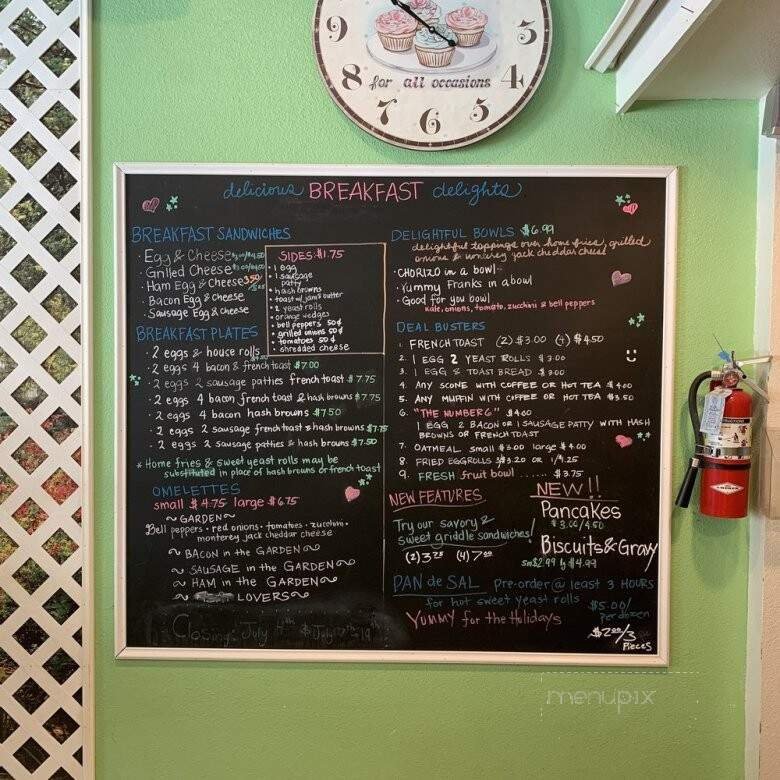 9
3
8 for all occasions 4
7 6 5
delicious BREAKFAST delights
BREAKFAST SANDWICHES
· Egg & Cheese
· Grilled Cheese
· Ham Egg & Cheese 3.50
· Bacon Egg & Cheese
· Sausage Egg & Cheese
SIDES: $1.75
· 1 egg
· 1 sausage
patty
· hash browns
· toast w/jam & butter
· 2 yeast rolls
· orange wedges
· bell peppers 50¢
· grilled onions 50¢
· tomatoes 50¢
· shredded cheese
BREAKFAST PLATES
· 2 eggs & house rolls
· 2 eggs 4 bacon & french toast $7.00
· 2 eggs 2 sausage patties french toast $7.75
· 2 eggs 4 bacon french toast & hash browns $7.75
· 2 eggs 4 bacon hash browns $7.50
· 2 eggs 2 sausage french toast & hash browns $7.75
· 2 eggs 2 sausage patties & hash browns $7.50
* Home fries & sweet yeast rolls may be
substituted in place of hash browns or french toast
OMELETTES
small $4.75 large $6.75
~ GARDEN ~
Bell peppers · red onions · tomatoes · zucchini ·
monterey jack cheddar cheese
~ BACON in the GARDEN ~
~ SAUSAGE in the GARDEN ~
~ HAM in the GARDEN ~
~ LOVERS ~
Closing: July
DELIGHTFUL BOWLS $6.99
delightful toppings over home fries, grilled
onions & monterey jack cheddar cheese
· CHORIZO in a bowl
· Yummy Franks in a bowl
· Good for you bowl
kale, onions, tomato, zucchini & bell peppers
DEAL BUSTERS
1. FRENCH TOAST (2) $3.00 (4) $4.50
2. 1 EGG 2 YEAST ROLLS $3.00
3. 1 EGG & TOAST BREAD $3.00
4. ANY SCONE WITH COFFEE OR HOT TEA $4.00
5. ANY MUFFIN WITH COFFEE OR HOT TEA $3.50
6. "THE NUMBER 6" $4.00
1 EGG 2 BACON OR 1 SAUSAGE PATTY WITH HASH
BROWNS OR FRENCH TOAST
7. OATMEAL small $3.00 large $4.00
8. FRIED EGGROLLS $3.20 OR 1/1.25
9. FRESH fruit bowl ...... $3.75
NEW FEATURES
Try our savory &
sweet griddle sandwiches!
(2) 3.75 (4) 7.00
NEW!!
Pancakes
$3.00/4.50
Biscuits & Gravy
sm $2.99 lg $4.99
PAN de SAL Pre-order @ least 3 HOURS
for hot sweet yeast rolls $5.00/
per dozen
Yummy for the Holidays
$2.00/3
Pieces
menupix